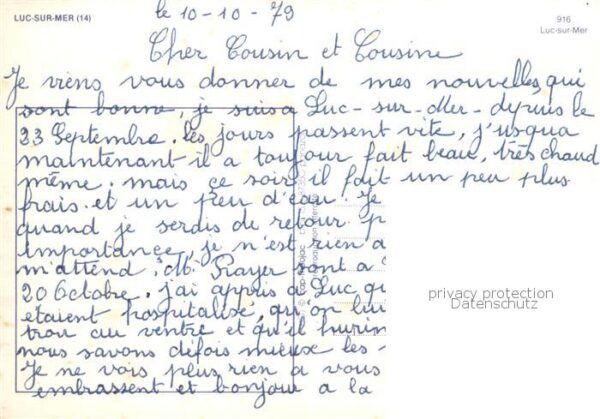 LUC-SUR-MER (14)
916
Luc-sur-Mer
le 10-10-79
Cher Cousin et Cousine
Je viens vous donner de mes nouvelles, qui
sont bonne, je suis a Luc-sur-Mer-depuis le
23 Septembre. les jours passent vite, j'usqua
maintenant il a toujour fait beau, très chaud
même. mais ce soir il fait un peu plus
frais. et un peu d'eau. Je
quand je serdis de retour. p
importance, je n'est rien a
m'attend. Mr Prayer sont a
20 Octobre. j'ai appris a Luc qu
etaient hospitalisé, qu'on lui
trou au ventre et qu'il
nous savons défois mieuse les
Je ne vois plus rien a vous
embrassent et bonjour a la
privacy protection
Datenschutz